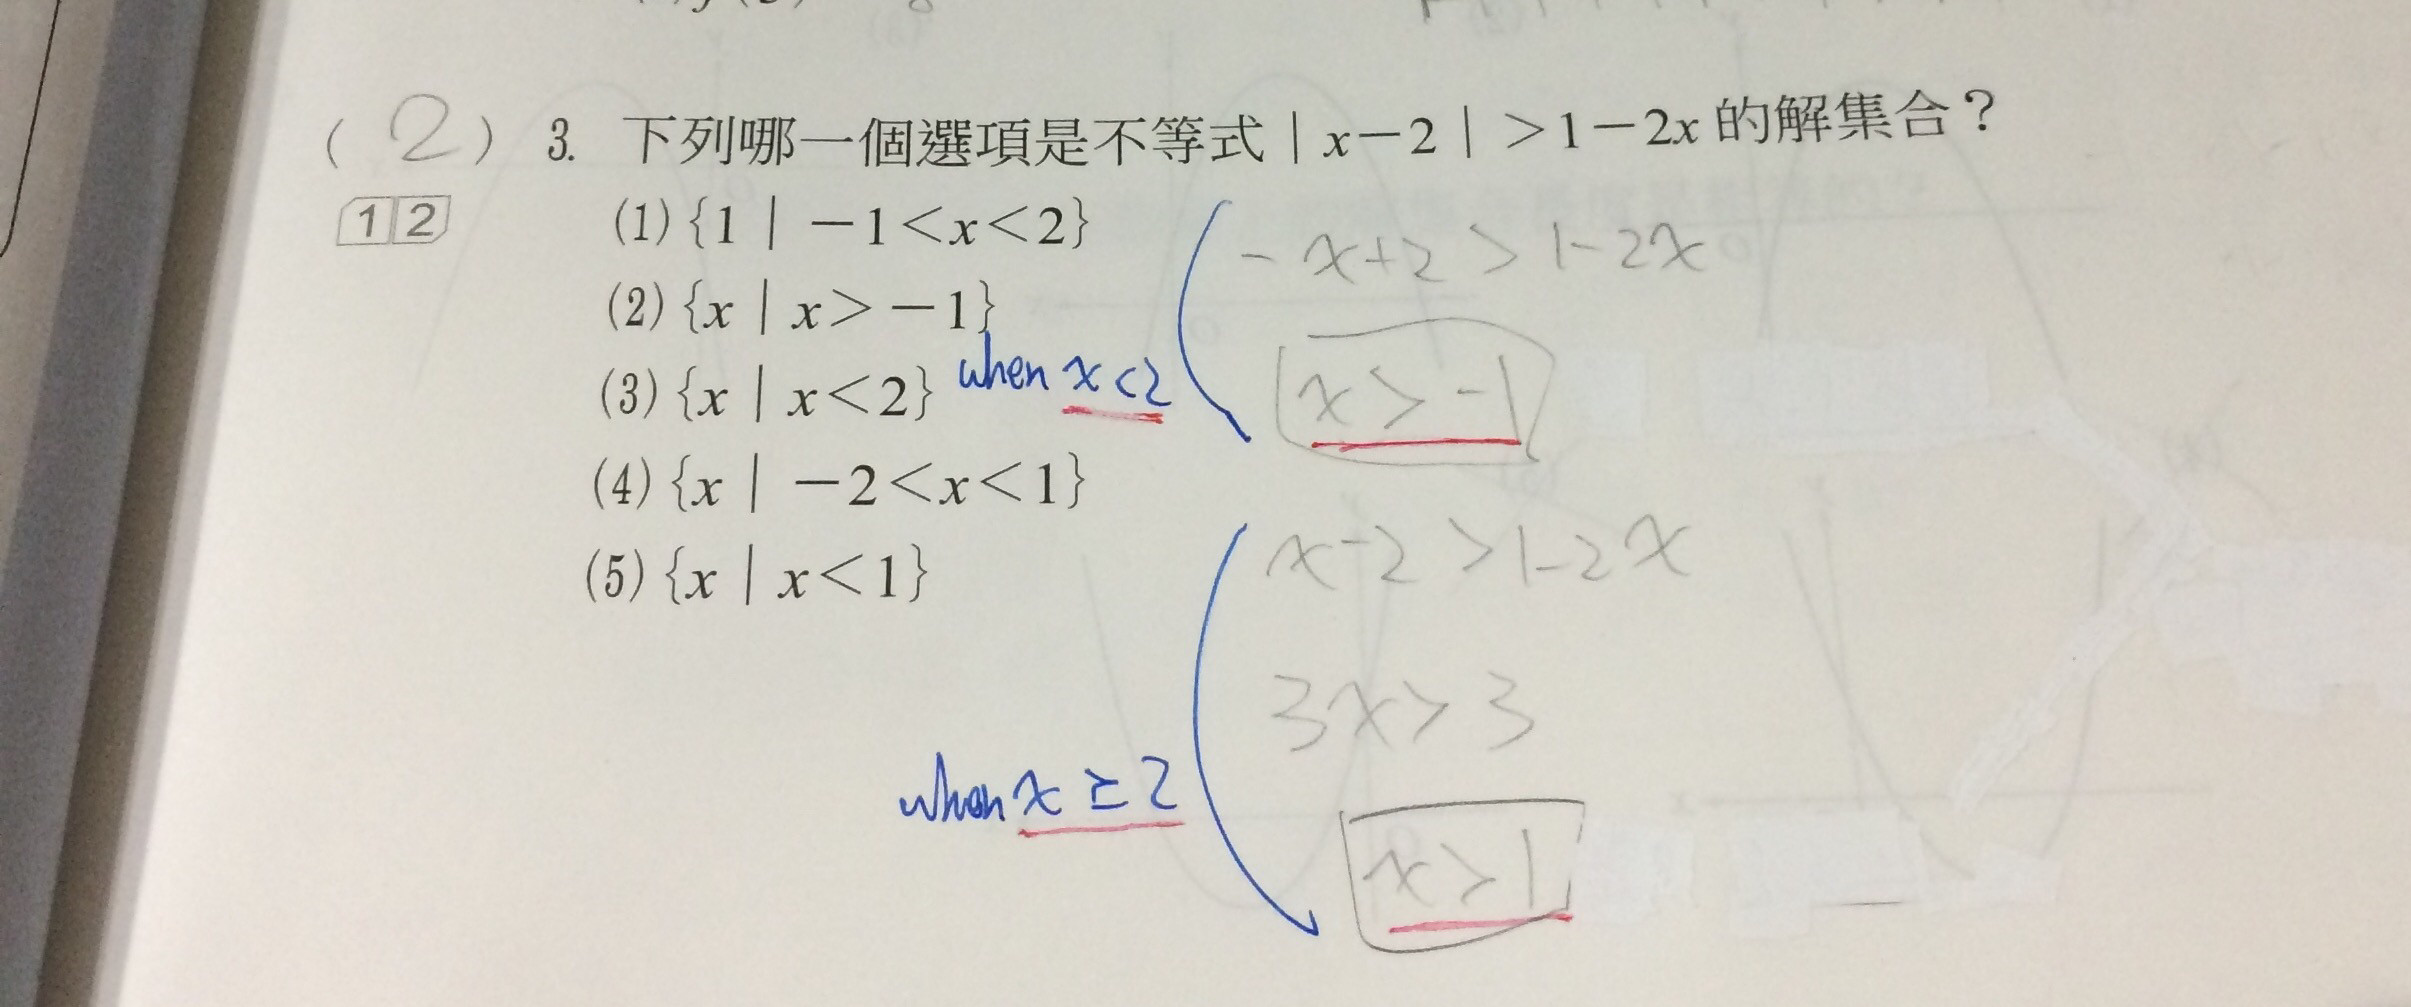 ( 2 ) 3. 下列哪一個選項是不等式 | x－2 | ＞1－2x 的解集合？
12
(1) {1 | －1＜x＜2}
(2) {x | x＞－1}
(3) {x | x＜2}
(4) {x | －2＜x＜1}
(5) {x | x＜1}
-x+2 > 1-2x
when x<2
x > -1
x-2 > 1-2x
3x > 3
when x ≥ 2
x > 1